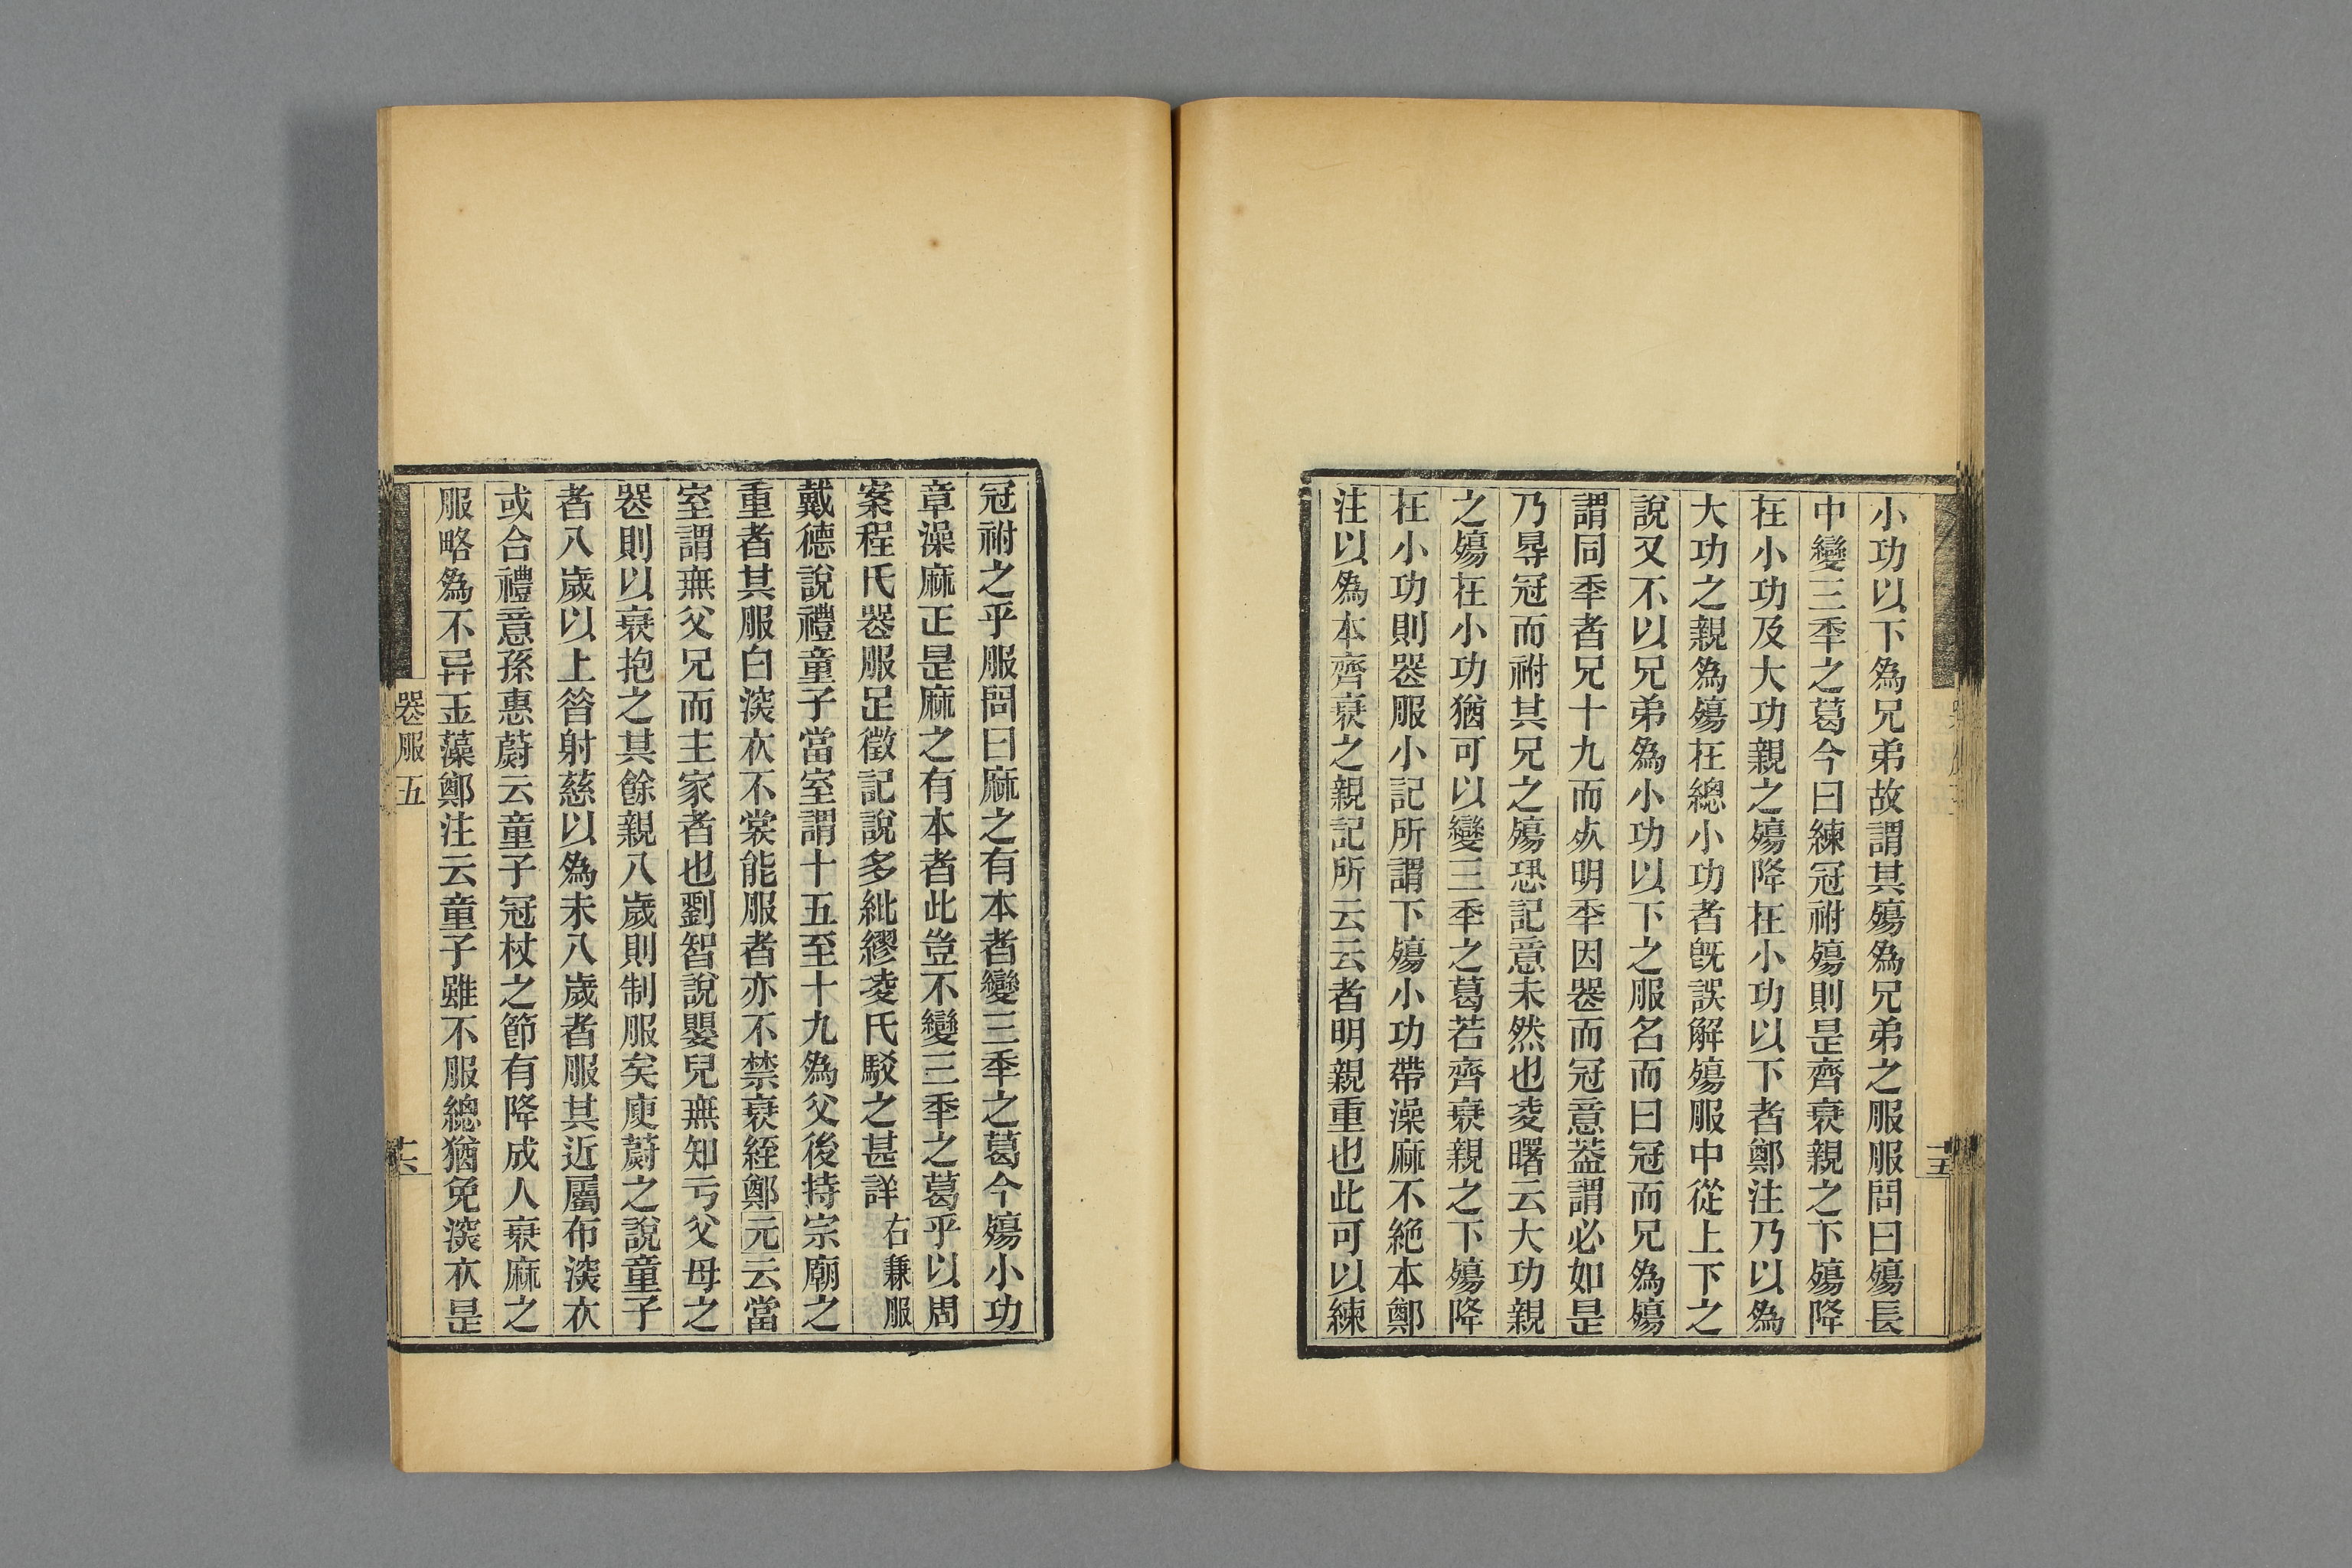 小功以下為兄弟故謂其殤為兄弟之服服問曰殤長
中變三秊之葛今曰練冠祔殤則是齊衰親之下殤降
在小功及大功親之殤降在小功以下者鄭注乃以為
大功之親為殤在緦小功者旣誤解殤服中從上下之
說又不以兄弟為小功以下之服名而曰冠而兄為殤
謂同秊者兄十九而死明秊因喪而冠意葢謂必如是
乃㝵冠而祔其兄之殤恐記意未然也凌曙云大功親
之殤在小功猶可以變三秊之葛若齊衰親之下殤降
在小功則喪服小記所謂下殤小功帶澡麻不絶本鄭
注以為本齊衰之親記所云云者明親重也此可以練
十五
冠祔之乎服問曰麻之有本者變三秊之葛今殤小功
章澡麻正是麻之有本者此豈不變三秊之葛乎以周
案程氏喪服足徵記說多紕繆凌氏駁之甚詳 右兼服
戴德說禮童子當室謂十五至十九為父後持宗廟之
重者其服白深衣不裳能服者亦不禁衰絰鄭元云當
室謂無父兄而主家者也劉智說嬰兒無知亏父母之
喪則以衰抱之其餘親八歲則制服矣庾蔚之說童子
者八歲以上㫺射慈以為未八歲者服其近屬布深衣
或合禮意孫惠蔚云童子冠杖之節有降成人衰麻之
服略為不异玉藻鄭注云童子雖不服緦猶免深衣是
喪服五
十六